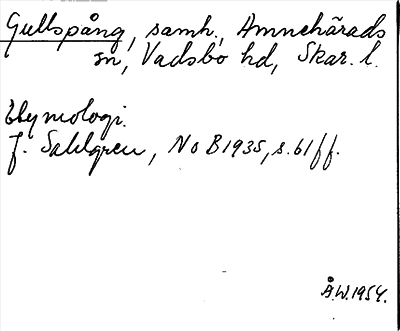 Gullspång, samh., Amnehärads
sn, Vadsbo hd, Skar. l.
Etymologi.
J. Sahlgren, NoB 1935, s. 61 ff.
Å.W. 1954.